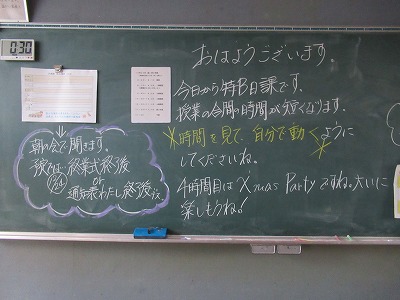 0:30
おはようございます。
今日から特B日課です。
授業の合間の時間が短くなります。
※時間を見て、自分で動くように※
してくださいね。
4時間目はXmas Partyですね。大いに
楽しもうね!
朝の会で聞きます。
終業式終後
12/24 or
通知表わたし終後